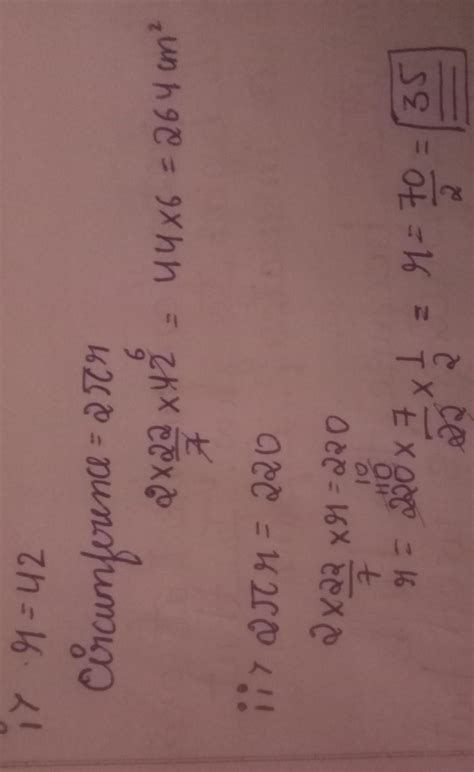 i> r = 42
Circumference = 2πr
2 × 22/7 × 42 6 = 44 × 6 = 264 cm²
ii> 2πr = 220
2 × 22/7 × r = 220
r = 220 110 10 × 7/22 2 × 1/2 = r = 70/2 = 35